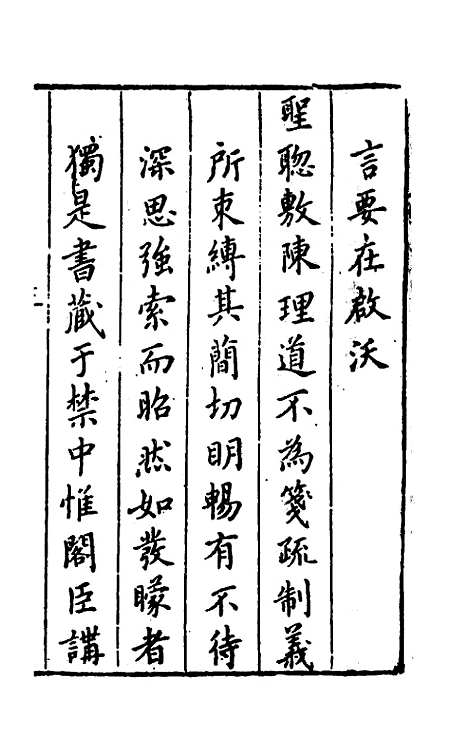 言要在啟沃
聖聰敷陳理道不為箋疏制義
所束縛其簡切明暢有不待
深思強索而昭然如發矇者
獨是書藏于禁中惟閣臣講